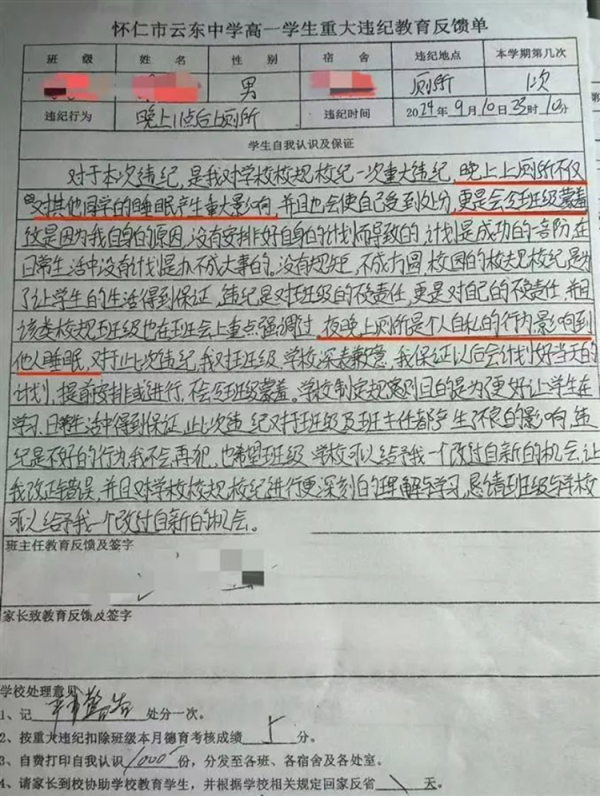 怀仁市云东中学高一学生重大违纪教育反馈单
班 级 姓 名 性 别 宿 舍 违纪地点 本学期第几次
男 厕所 1次
违纪行为 晚上11点后上厕所 违纪时间 2024年9月10日23时10分
学生自我认识及保证
对于本次违纪,是我对学校校规校纪一次重大违纪,晚上上厕所不仅
对其他同学的睡眠产生重大影响,并且也会使自己受到处分,更是会令班级蒙羞
这是因为我自身的原因,没有安排好自身的计划而导致的,计划是成功的一部阶,在
日常生活中没有计划是办不成大事的。没有规矩,不成方圆,校园的校规校纪是为
了让学生的生活得到保证,违纪是对班级的不负责任,更是对自己的不负责任,并且
该类校规班级也在班会上重点强调过,夜晚上厕所是个人自私的行为影响到
他人睡眠,对于此次违纪,我对班级,学校深表歉意,我保证以后会计划好当天的
计划,提前安排或进行,不会令班级蒙羞。学校制定规章则目的是为了更好让学生在
学习,日常生活中得到保证,此次违纪对于班级及班主任都产生了不良的影响,违
纪是不好的行为,我不会再犯,也希望班级 学校可以给予我一个改过自新的机会,让
我改正错误,并且对学校校规校纪进行更深刻的理解与学习,恳请班级与学校
可以给予我一个改过自新的机会。
班主任教育反馈及签字
家长致教育反馈及签字
学校处理意见
1、记 警告 处分一次。
2、按重大违纪扣除班级本月德育考核成绩 分。
3、自费打印自我认识 1000 份,分发至各班、各宿舍及各处室。
4、请家长到校协助学校教育学生,并根据学校相关规定回家反省 天。